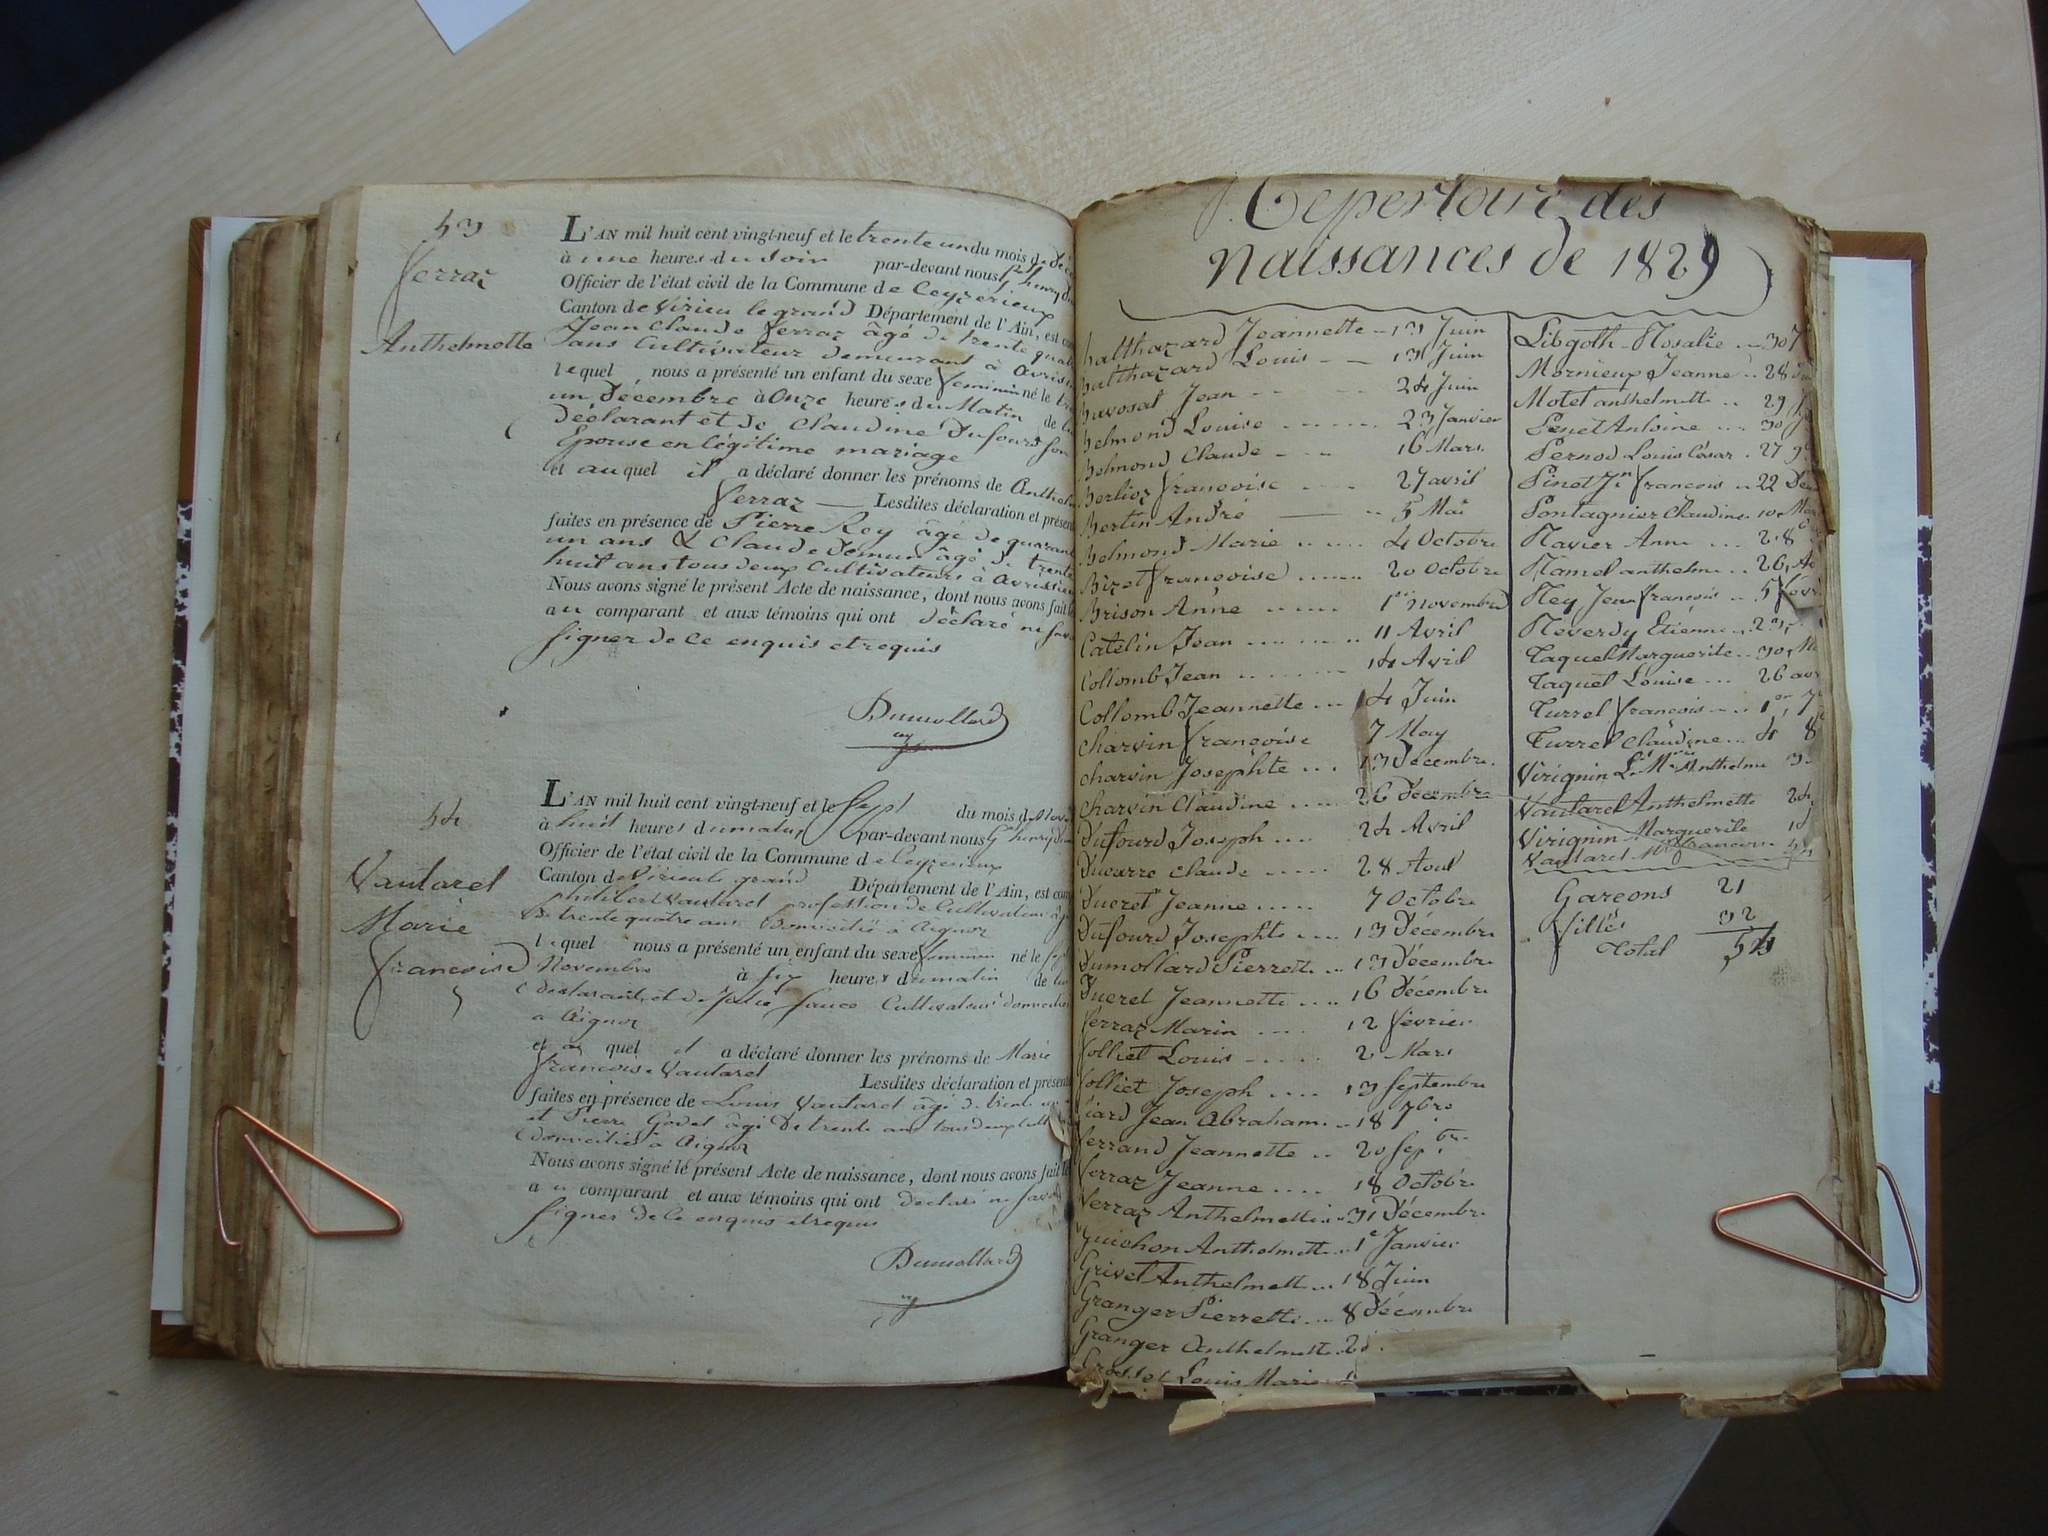 53
Ferraz
Anthelmette
L'AN mil huit cent vingt-neuf et le trente un du mois de
à une heures du soir par-devant nous
Officier de l'état civil de la Commune de Ceyzerieux
Canton de Virieu le grand Département de l'Ain, est
Jean Claude Ferraz âgé de trente quat
ans Cultivateur demeurant à Avris
lequel nous a présenté un enfant du sexe feminin né le
un décembre à Onze heures du Matin de
déclarant et de Claudine Dufourd son
Epouse en légitime mariage
et auquel il a déclaré donner les prénoms de Anthel
Ferraz Lesdites déclaration et présen
faites en présence de Pierre Rey âgé de quarant
un ans & Claude Demun âgé de trente
huit ans tous deux Cultivateurs à Avrissieu
Nous avons signé le présent Acte de naissance, dont nous avons fait
au comparant et aux témoins qui ont déclaré ne
signer de ce enquis et requis
Dumollard
54
Vautaret
Marie
françoise
L'AN mil huit cent vingt-neuf et le sept du mois de
à huit heures du matin par-devant nous
Officier de l'état civil de la Commune de Ceyzerieux
Canton de Virieu le grand Département de l'Ain, est
philibert Vautaret profession de Cultivateur
de trente quatre ans Domicilié a Aignoz
lequel nous a présenté un enfant du sexe feminin né le
Novembre à six heures du matin de
declarant et de Cultivateurs
a Aignoz
et au quel il a déclaré donner les prénoms de Marie
francoise Vautaret Lesdites déclaration et présen
faites en présence de Louis Vautaret âgé de trente
et Pierre Godet âgé de trente ans tous deux
Domiciliés a Aignoz
Nous avons signé le présent Acte de naissance, dont nous avons fait
au comparant et aux témoins qui ont declaré ne
signer de ce enquis et requis
Dumollard
Repertoire des
naissances de 1829
Balthazard Jeannette 13 Juin
Balthazard Louis 13 Juin
Buvosat Jean 24 Juin
Belmond Louise 23 Janvier
Belmond Claude 16 Mars
Berlioz françoise 27 avril
Bertin André 5 Mai
Belmond Marie 4 Octobre
Bizet françoise 20 Octobre
Brison Anne 1er novembre
Catelin Jean 11 Avril
Collomb Jean 14 Avril
Collomb Jeannette 14 Juin
Charvin françoise 7 May
Charvin Josephte 13 Décembre
Charvin Claudine 26 Décembre
Dufourd Joseph 24 Avril
Ducarre Claude 28 Aout
Ducret Jeanne 7 Octobre
Dufourd Josephte 13 Décembre
Dumollard Pierrette 13 Décembre
Ducret Jeannette 16 Décembre
Ferraz Marin 12 février
folliet Louis 2 Mars
folliet Joseph 13 septembre
Jean Abraham 18 7bre
ferrand Jeannette 20 sepbre
ferraz Jeanne 18 Octobre
ferraz Anthelmette 31 Décembre
Guichon Anthelmette 1e Janvier
Grivet Anthelmette 18 Juin
Granger Pierrette 8 Décembre
Granger Anthelmette
Louis Marie
Libgoth Rosalie 30
Mornieux Jeanne 28
Motet anthelmette 29
Penet Antoine 30
Pernod Louis César 27
Pinet Jn francois 22
Pontagnier Claudine 10
Ravier Anne 28
Ramel anthelme 26
Rey Jean francois 5
Reverdy Etienne
Taquet Marguerite 30
Taquet Louise 26
Turrel francois 1er
Turrel Claudine 4
Virignin Anthelme
Vautaret Anthelmette 24
Virignin Marguerite
Vautaret francoise
Garçons 21
filles 32
Total 54